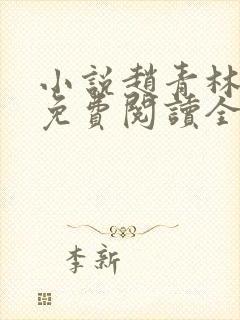 小說趙青林
免費閱讀全
李新